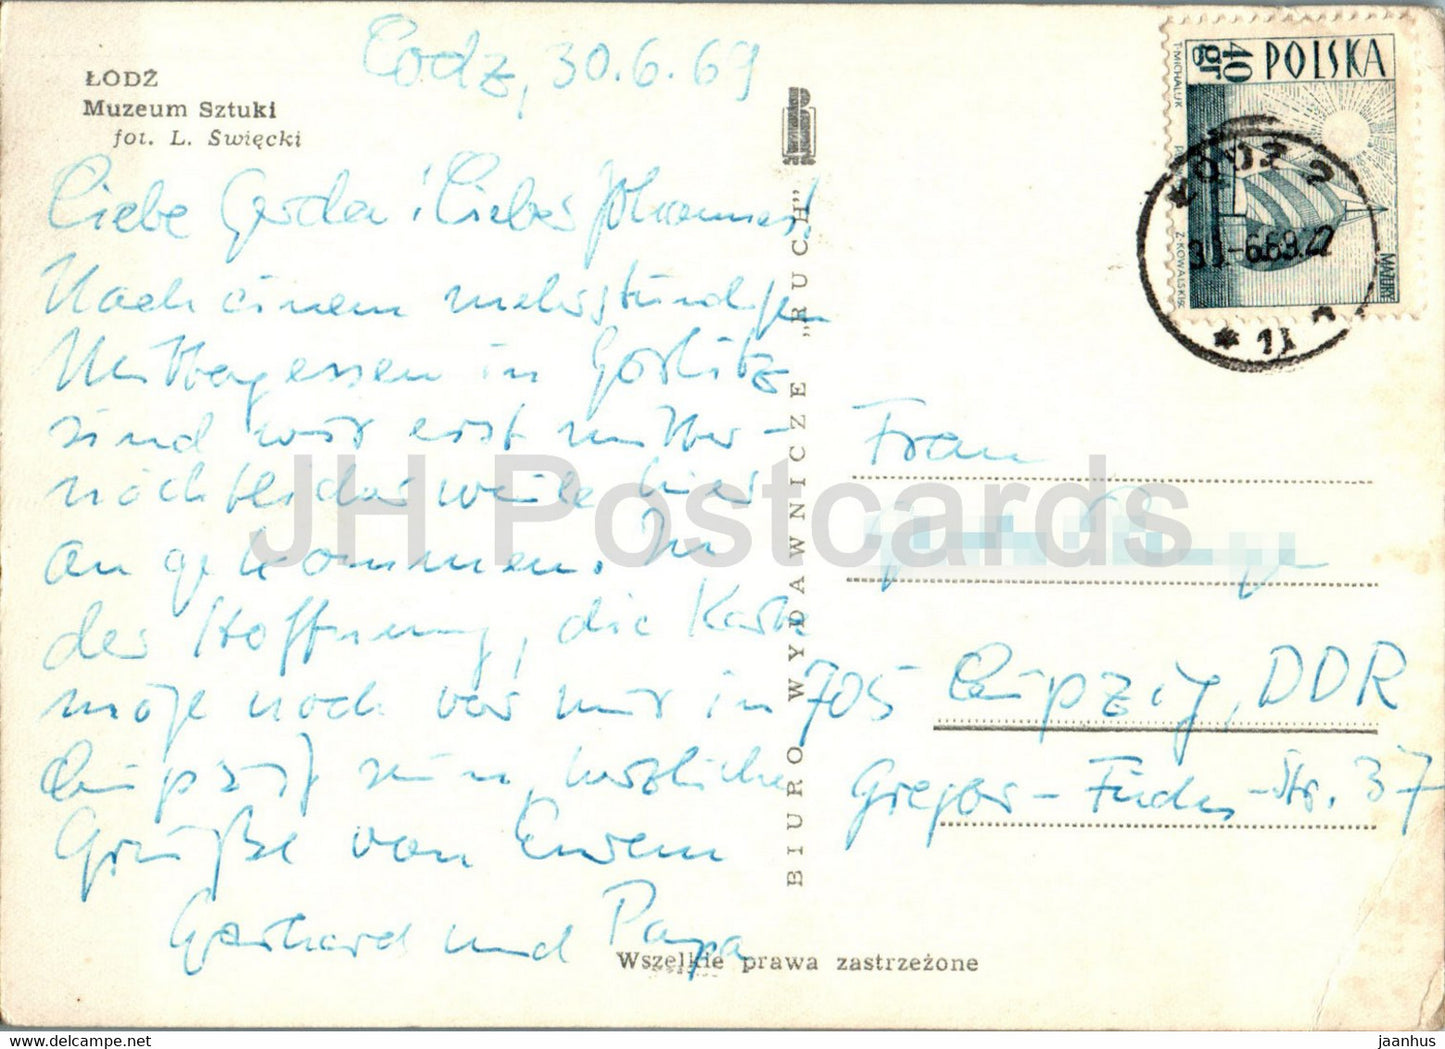 Lodz, 30.6.69
ŁODŹ
Muzeum Sztuki
fot. L. Święcki
Liebe Gerda! Lieber Johannes!
Nach einem mehrstündigen
Mittagessen in Görlitz
sind wir erst mitter-
nächtlicherweile hier
angekommen. In
der Hoffnung, die Karte
möge noch vor mir in
Leipzig sein, herzliche
Grüße von Eurem
Gerhard und Papa
BIURO WYDAWNICZE „RUCH"
Wszelkie prawa zastrzeżone
40 gr POLSKA
T. MICHALUK
Z. KOWALSKI
ŁÓDŹ 2
30.-6.69.22
Frau
705 Leipzig, DDR
Gregor-Fuchs-Str. 37
JH Postcards
jaanhus